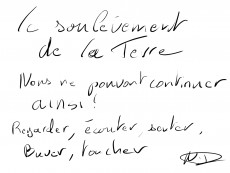 le soulèvement
de la Terre
Nous ne pouvont continuer
ainsi !
Regarder, écouter, sauter,
Buver, toucher
N.D